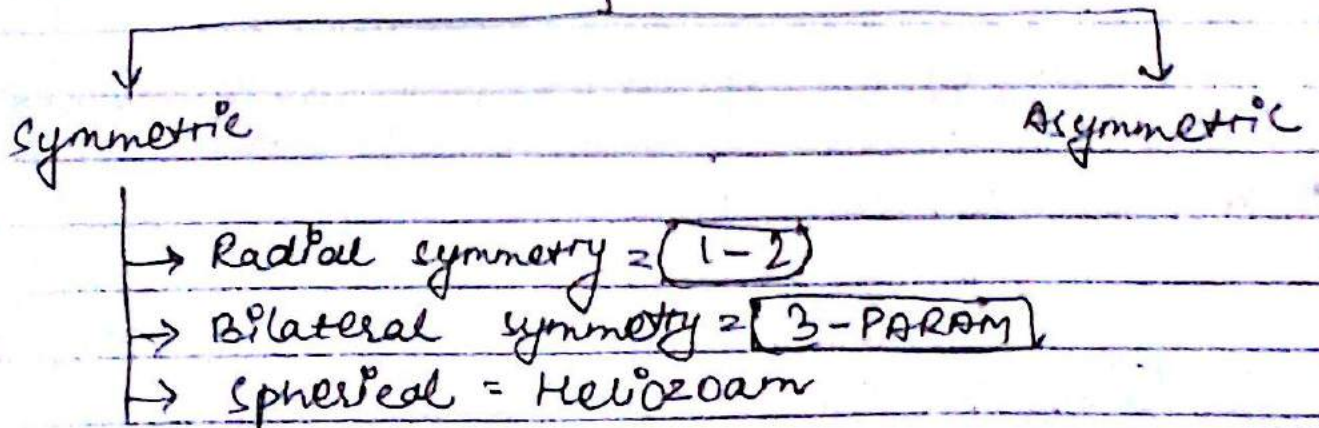 Symmetric
Asymmetric
→ Radial symmetry = (1-2)
→ Bilateral symmetry = [3-PARAM]
→ Spherical = Heliozoam